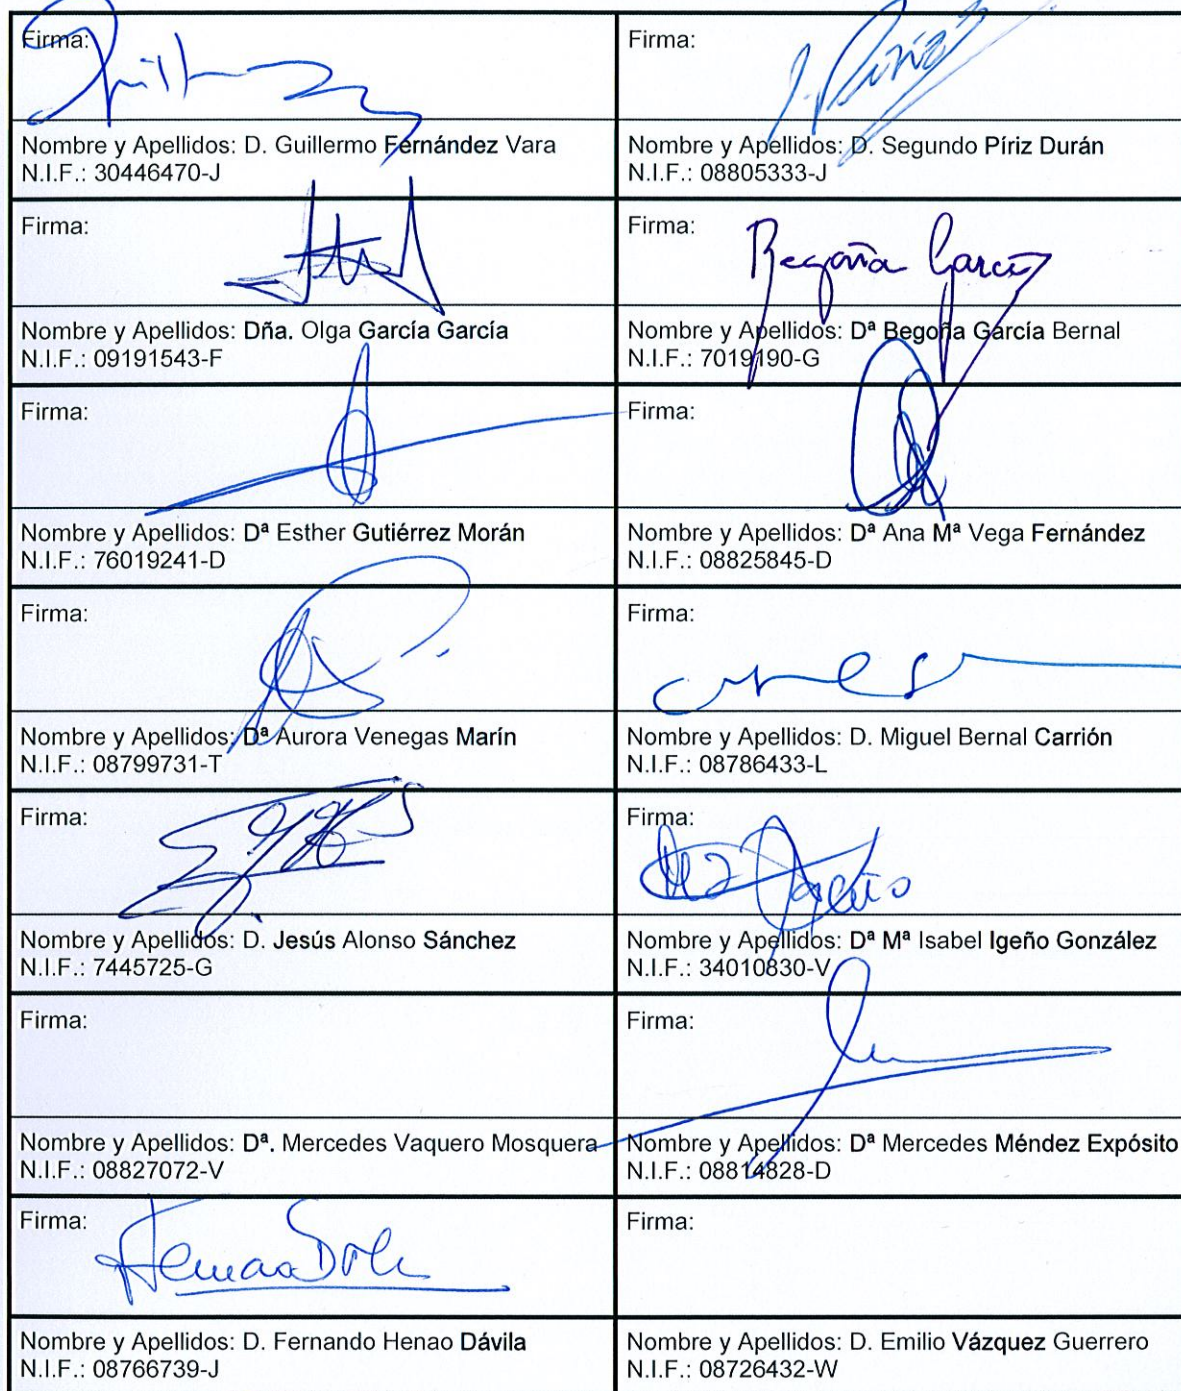 Firma:
Firma:
Nombre y Apellidos: D. Guillermo Fernández Vara
N.I.F.: 30446470-J
Nombre y Apellidos: D. Segundo Píriz Durán
N.I.F.: 08805333-J
Firma:
Firma:
Begoña García
Nombre y Apellidos: Dña. Olga García García
N.I.F.: 09191543-F
Nombre y Apellidos: Dª Begoña García Bernal
N.I.F.: 7019190-G
Firma:
Firma:
Nombre y Apellidos: Dª Esther Gutiérrez Morán
N.I.F.: 76019241-D
Nombre y Apellidos: Dª Ana Mª Vega Fernández
N.I.F.: 08825845-D
Firma:
Firma:
Nombre y Apellidos: Dª Aurora Venegas Marín
N.I.F.: 08799731-T
Nombre y Apellidos: D. Miguel Bernal Carrión
N.I.F.: 08786433-L
Firma:
Firma:
Nombre y Apellidos: D. Jesús Alonso Sánchez
N.I.F.: 7445725-G
Nombre y Apellidos: Dª Mª Isabel Igeño González
N.I.F.: 34010830-V
Firma:
Firma:
Nombre y Apellidos: Dª. Mercedes Vaquero Mosquera
N.I.F.: 08827072-V
Nombre y Apellidos: Dª Mercedes Méndez Expósito
N.I.F.: 08814828-D
Firma:
Firma:
Nombre y Apellidos: D. Fernando Henao Dávila
N.I.F.: 08766739-J
Nombre y Apellidos: D. Emilio Vázquez Guerrero
N.I.F.: 08726432-W